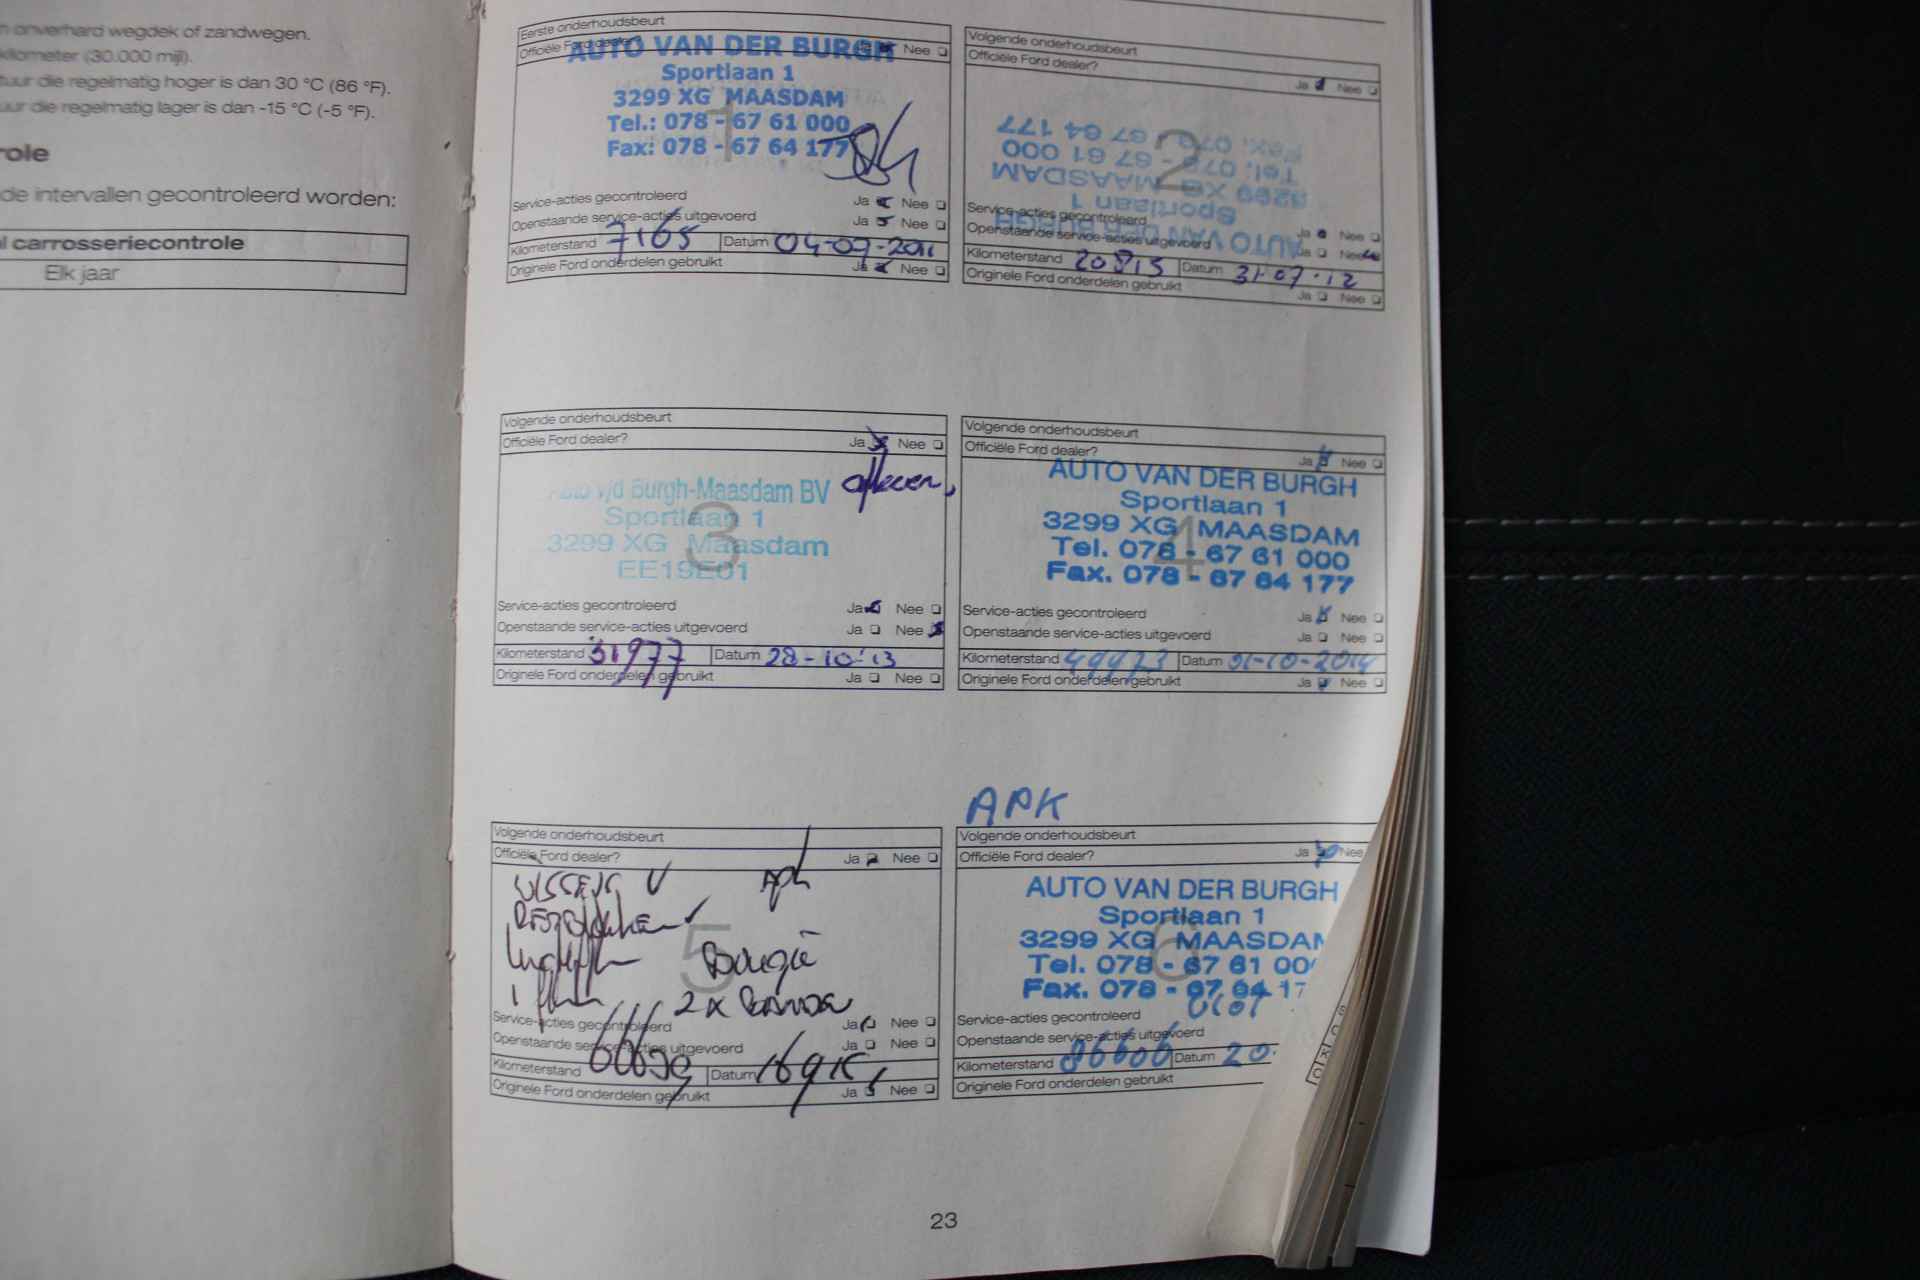 onverhard wegdek of zandwegen.
kilometer (30.000 mijl).
tuur die regelmatig hoger is dan 30 °C (86 °F).
uur die regelmatig lager is dan -15 °C (-5 °F).
role
de intervallen gecontroleerd worden:
l carrosseriecontrole
Elk jaar
Eerste onderhoudsbeurt
Officiële Ford dealer? Ja Nee
AUTO VAN DER BURGH
Sportlaan 1
3299 XG MAASDAM
Tel.: 078 - 67 61 000
Fax: 078 - 67 64 177
1
Service-acties gecontroleerd Ja Nee
Openstaande service-acties uitgevoerd Ja Nee
Kilometerstand 7165 Datum 04-07-2011
Originele Ford onderdelen gebruikt Ja Nee
Volgende onderhoudsbeurt
Officiële Ford dealer?
Ja Nee
2
AUTO VAN DER BURGH
Sportlaan 1
3299 XG MAASDAM
Tel. 078 - 67 61 000
Fax. 078 - 67 64 177
Service-acties gecontroleerd Ja Nee
Openstaande service-acties uitgevoerd Ja Nee
Kilometerstand 20815 Datum 31-07-12
Originele Ford onderdelen gebruikt Ja Nee
Volgende onderhoudsbeurt
Officiële Ford dealer? Ja Nee
Auto v/d Burgh-Maasdam BV
Sportlaan 1
3299 XG Maasdam
EE19E01
3
Service-acties gecontroleerd Ja Nee
Openstaande service-acties uitgevoerd Ja Nee
Kilometerstand 31977 Datum 28-10-'13
Originele Ford onderdelen gebruikt Ja Nee
Volgende onderhoudsbeurt
Officiële Ford dealer? Ja Nee
AUTO VAN DER BURGH
Sportlaan 1
3299 XG MAASDAM
Tel. 078 - 67 61 000
Fax. 078 - 67 64 177
4
Service-acties gecontroleerd Ja Nee
Openstaande service-acties uitgevoerd Ja Nee
Kilometerstand Datum 01-10-2014
Originele Ford onderdelen gebruikt Ja Nee
Volgende onderhoudsbeurt
Officiële Ford dealer? Ja Nee
5
Bougie
2x
Service-acties gecontroleerd Ja Nee
Openstaande service-acties uitgevoerd Ja Nee
Kilometerstand Datum
Originele Ford onderdelen gebruikt Ja Nee
APK
Volgende onderhoudsbeurt
Officiële Ford dealer? Ja Nee
AUTO VAN DER BURGH
Sportlaan 1
3299 XG MAASDAM
Tel. 078 - 67 61 00
Fax. 078 - 67 64 17
6
Service-acties gecontroleerd
Openstaande service-acties uitgevoerd
Kilometerstand 86606 Datum 20-
Originele Ford onderdelen gebruikt
23